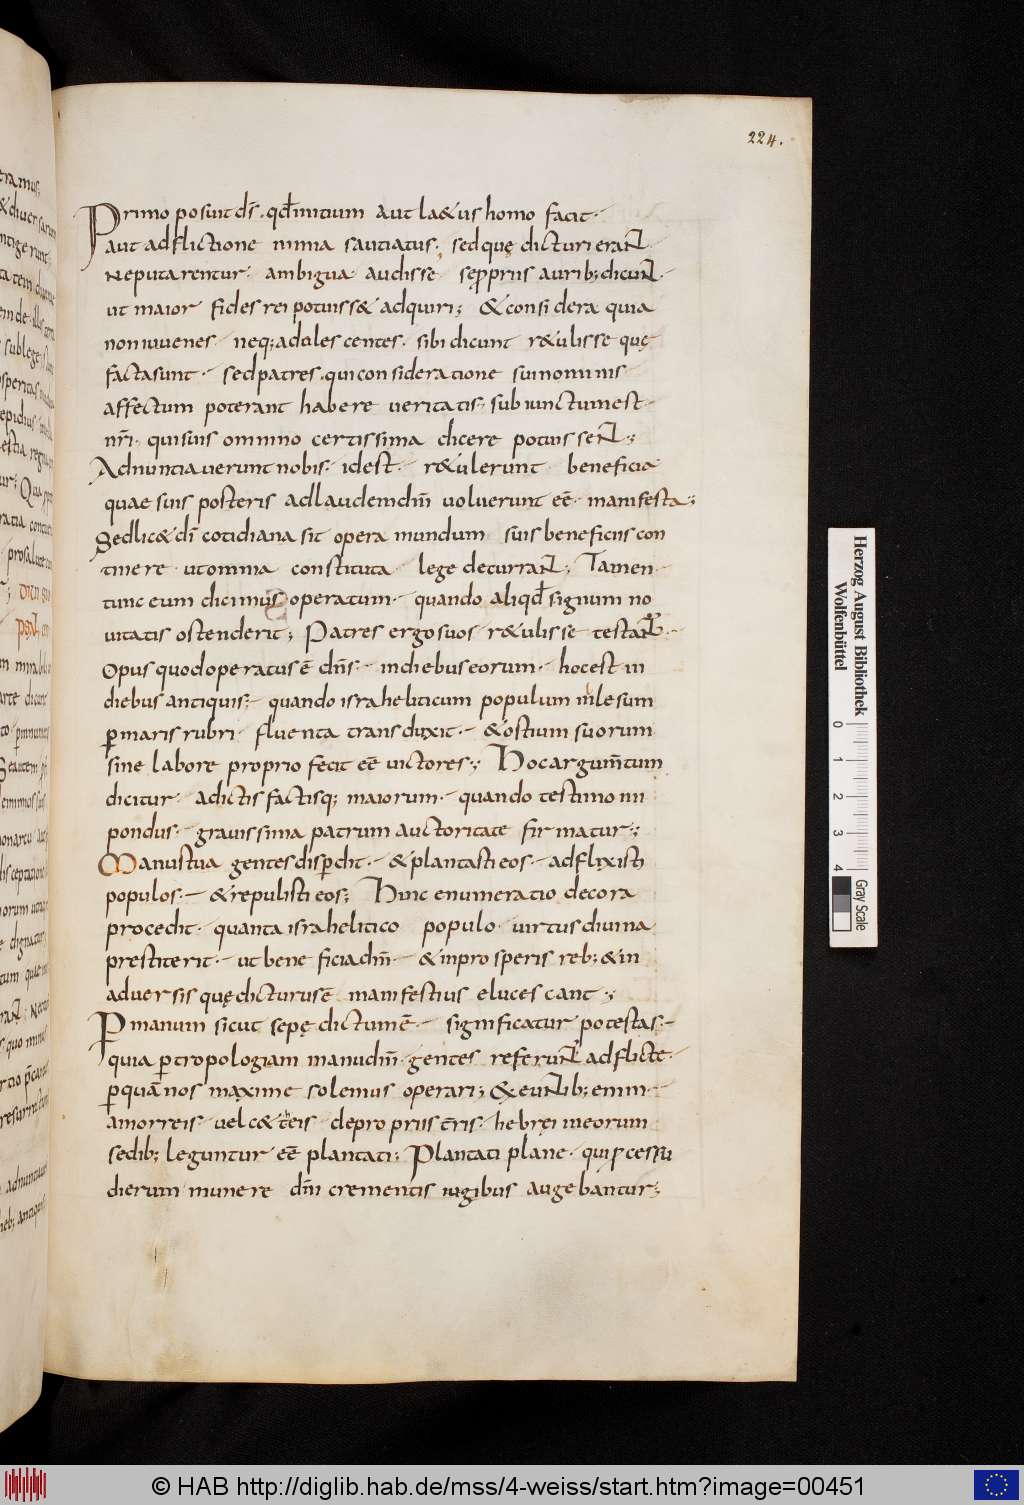 224.
Primo posuit ds̄. qđ initium aut la&us homo facit.
aut adflictione nimia sautiatus; sed quę dicturi erant
Ne putarentur ambigua audisse se ꝓpriis aurib; dicunt.
ut maior fides rei potuiss& adquiri; & considera quia
non iuuenes neq; adulescentes. sibi dicunt r&ulisse quę
facta sunt. sed patres. qui consideratione sui nominis
affectum poterant habere ueritatis. subiunctum est
nr̄i. quis uis omnino certissima dicere potuissent;
Adnuntiauerunt nobis. idest. r&ulerunt beneficia
quae suis posteris ad laudem dm̄ uoluerunt eē manifesta;
Sed lic& ds̄ cotidiana sit opera mundum suis beneficiis con
tinere ut omnia constituta lege decurrant; Tamen
tunc eum dicimus operatum. quando aliqđ signum no
uitatis ostenderit; Patres ergo suos r&ulisse testantur
Opus quod operatus ē dns̄. in diebus eorum. hoc est in
diebus antiquis; quando israheliticum populum inlesum
ꝑ maris rubri fluenta transduxit. & ostium suorum
sine labore proprio fecit eē uictores; Hoc argum̄tum
dicitur a dictis factisq; maiorum. quando testimonii
pondus. grauissima patrum auctoritate firmatur;
Manus tua gentes disꝑdit. & plantasti eos. adflixisti
populos. & repulisti eos; Hinc enumeratio decora
procedit. quanta israhelitico populo uirtus diuina
prestiterit. ut beneficia dm̄. & in prosperis reb; & in
aduersis quę dicturus ē manifestius elucescant;
Ꝑ manum sicut sepę dictum ē. significatur potestas.
quia ꝑ tropologiam manu dm̄. gentes referunt adflicte.
ꝑ quā nos maxime solemus operari; & euntib; enim
amorreis uel c&teis de propriis tr̄ris. hebręi in eorum
sedib; leguntur eē plantati; Plantati plane. qui ꝓcessu
dierum munere dn̄i crementis iugibus augebantur;
Herzog August Bibliothek
Wolfenbüttel
0 1 2 3 4
Gray Scale
© HAB http://diglib.hab.de/mss/4-weiss/start.htm?image=00451